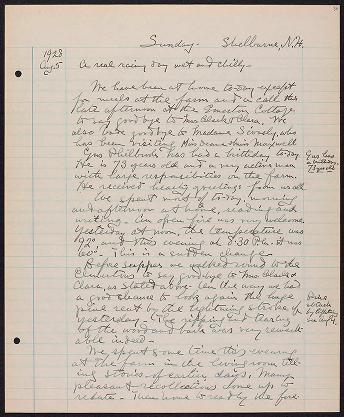 Sunday - Shelburne, N.H.
1923
Aug. 5
A real rainy day wet and chilly -
We have been at home to-day except
for meals at the farm and a call this
late afternoon at the Emerton Cottage
to say goodbye to Mrs. Clark & Clara. We
also bade goodbye to Madame who
has been visiting Miss
Gus Philbrook has had a birthday to-day
He is 73 years old and a very active man
with large responsibilities on the farm.
He received hearty greetings from us all
We spent most of to-day, morning
and afternoon at home, reading and
writing. An open fire was very welcome.
Yesterday at noon, the temperature was
92° and this evening at 8.30 P.M. it was
60°. This is a sudden change.
Before supper we walked round to the
to say goodbye to Mrs. Clark &
Clara, as stated above. On the way we had
a good chance to look again the huge
pine rent by the lightning stroke of
yesterday. The ripping and tearing
of the wood and bark was very remark-
able indeed -
We spent some time this evening
at the farm in the living room tell-
ing stories of earlier days. Many
pleasant recollections come up to
relate. Then home to read by the fire.
Gus has
a birthday
73 years old
Pine
struck
by lightning